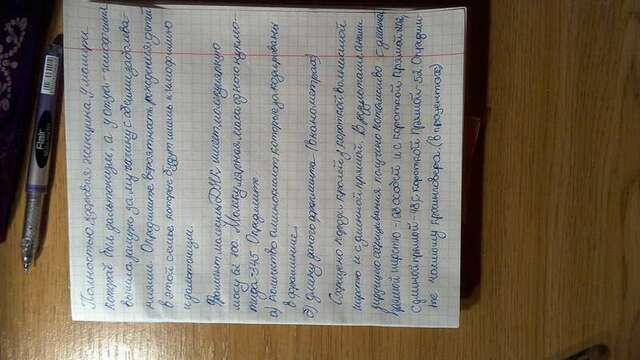 Flair
Полностью здоровая женщина, у матери
которой был дальтонизм, а у отца - гемофилия
вышла замуж за мужчину с обеими заболева-
ниями. Определите вероятность рождения детей
в этой семье которые будут иметь и гемофилию
и дальтонизм.
Фрагмент молекулы ДНК имеет молекулярную
масу 62 100. Молекулярная маса одного нуклео-
тида-345. Определите
а) количество аминокислот которые закодированы
в фрагменте
б) длину даного фрагмента (в нанометрах)
Скрещено породи кролей з короткой волнистой
шерстю и с длинной прямой. В результате анали-
зирующего скрещивания получено потомство с длинной
прямой шерстю - особей и с короткой прямой
с длиной прямой - 48 с короткой прямой - 52. Определи-
те частоту кросинговера. (в процентах)